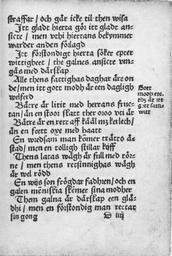 straffar / och går icke til then wisa
Itt gladt hierta gör itt gladt an
sicte / men når thi hiertans bekymmer
warder anden fölagd
Itt förståndigt hierta söker epter
wittighet / the galnes ansicte um
gås med dårskap
Alle thens fattighas daghar äre on
de / men itt gott modh är een daghligh
welferd
Bätre är litet med herrans fruc
tan / än en stoor skatt ther oroo wedh är
Bätre är en rett aff kål medh kerleek /
än en feett oxe med haatt
En wredsam man kömer träto å
stad / men en tolligh stillar kiiff
Thens latas wägh är full med tör
ne / men thens rettsinnighas wägh
är wel rödd
En wijs son frögdar fadhren / och en
galen menniskia skemer sina modher
Them galna är dårskap een glä
dhi / men en förståndig man reccar
sin gong
D iiij
Gott
modh etc.